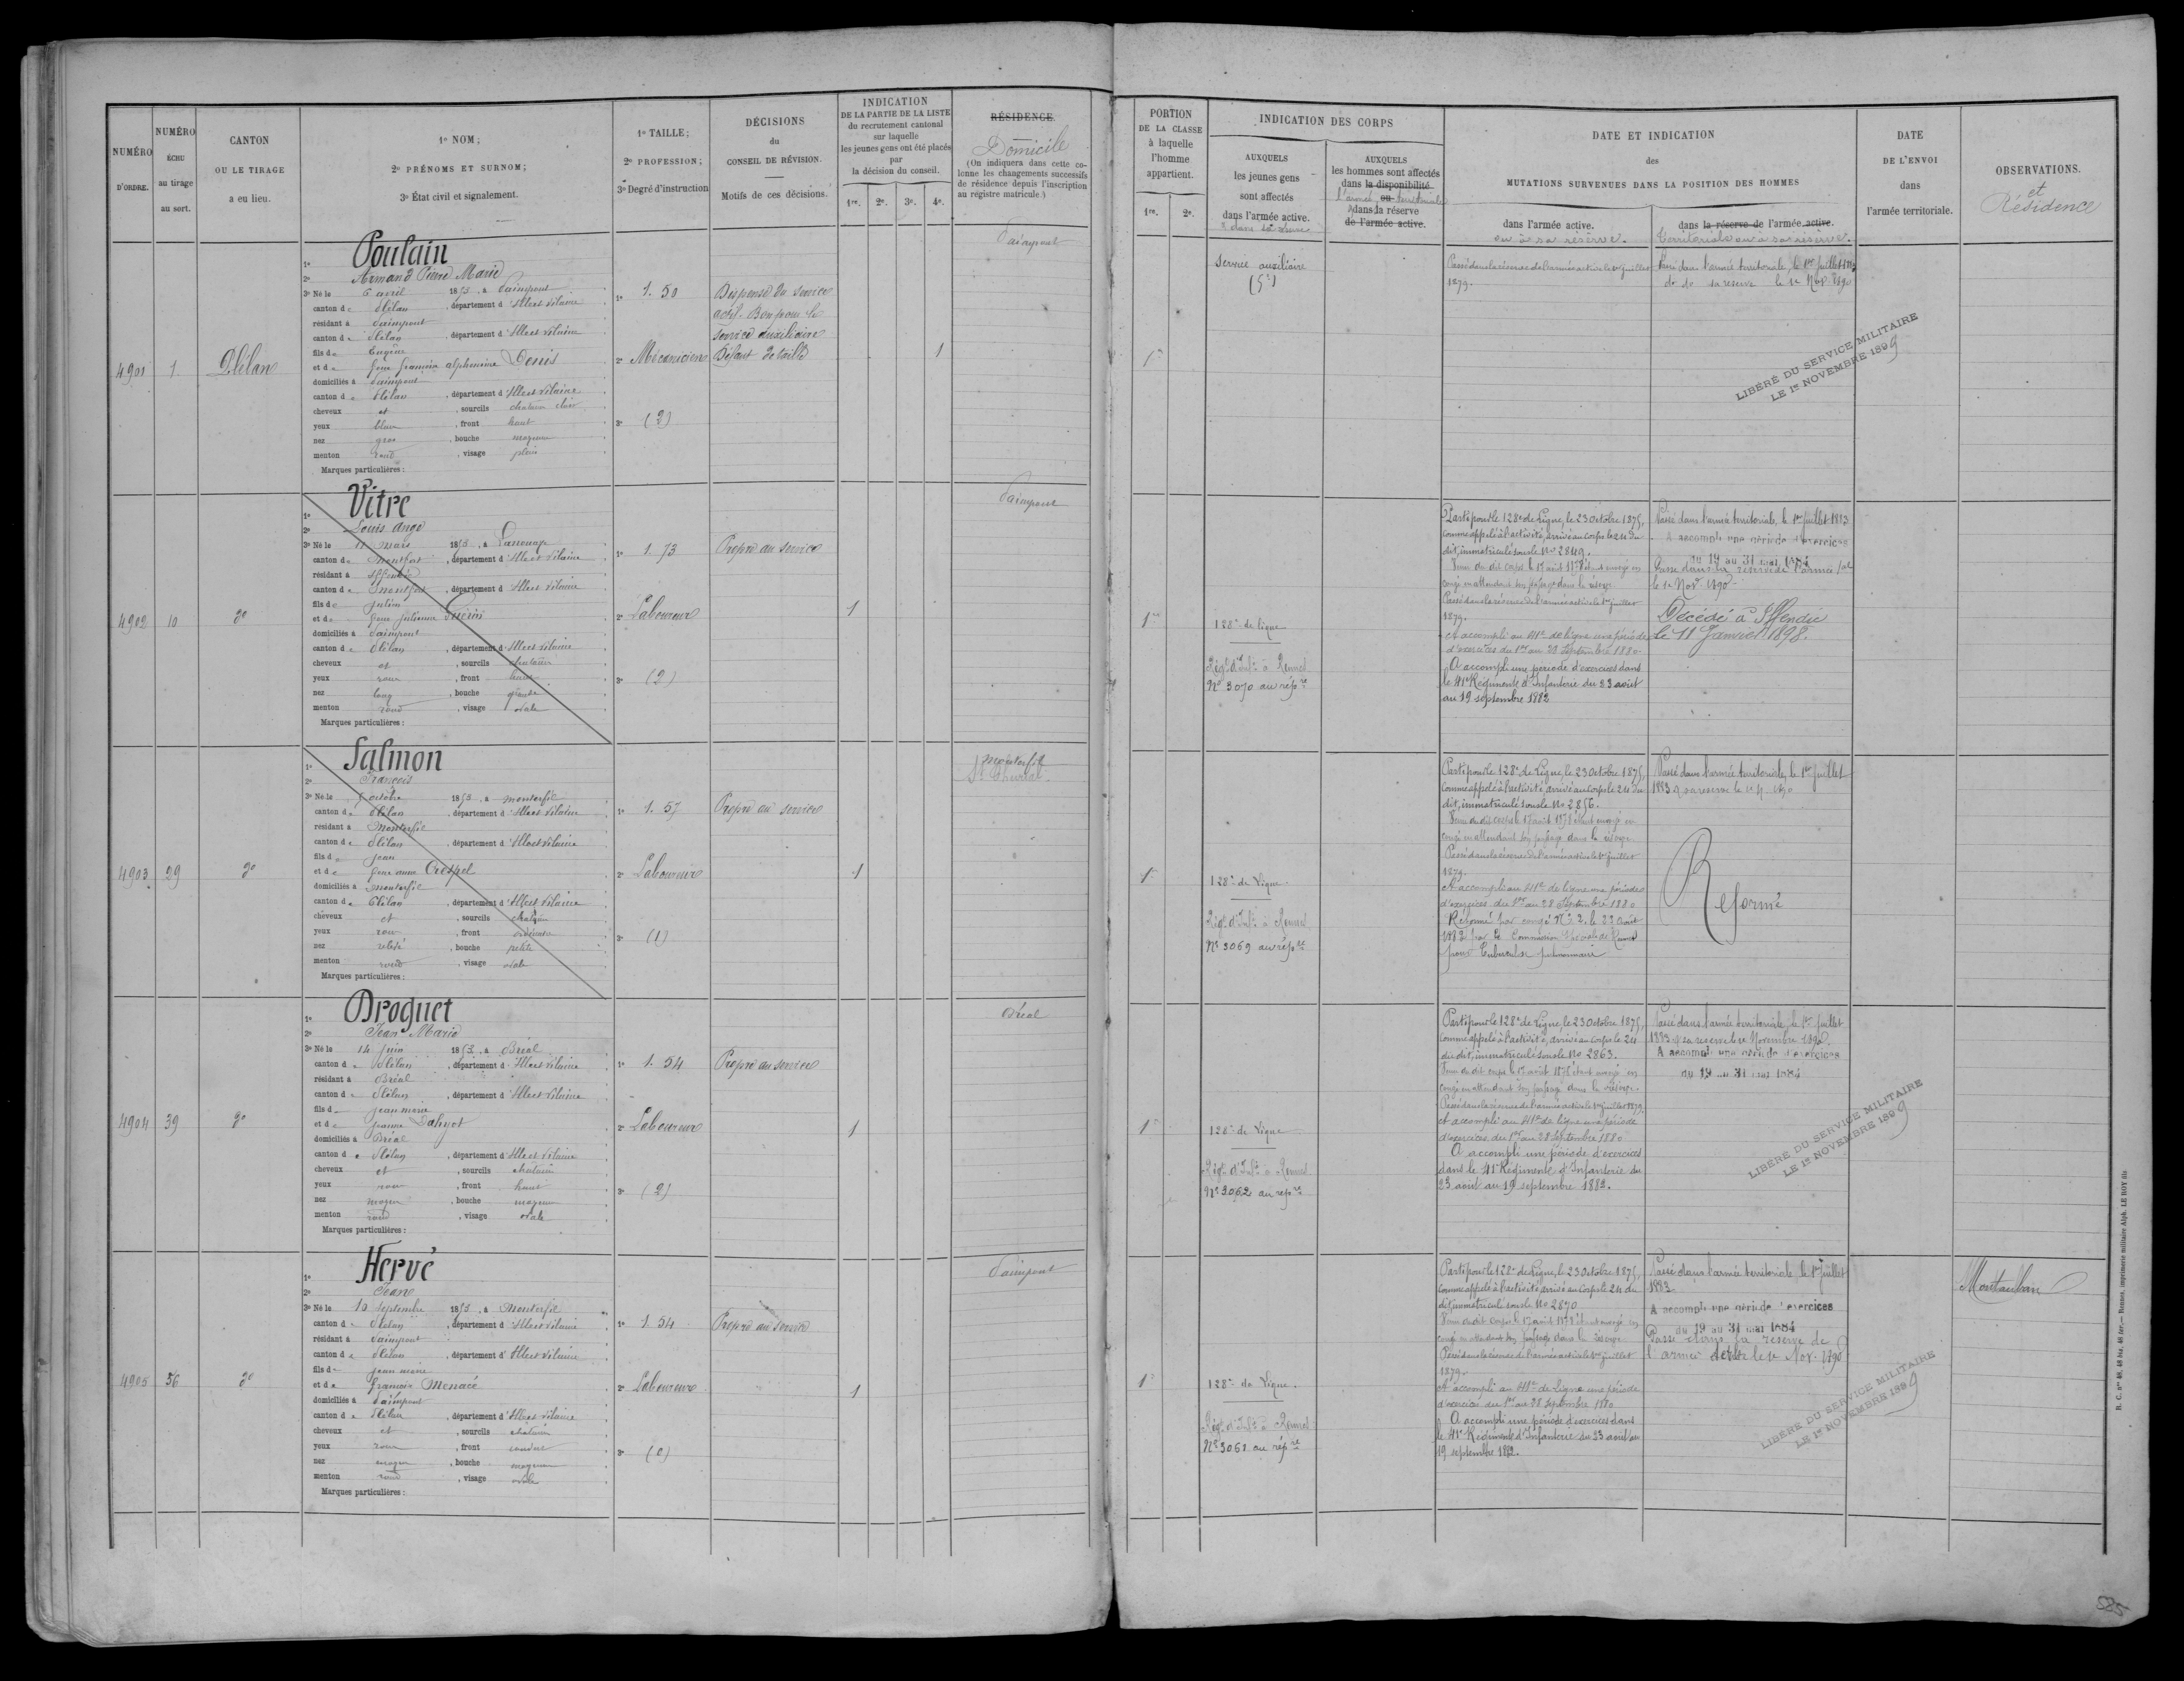 NUMÉRO D'ORDRE.
NUMÉRO ÉCHU au tirage au sort.
CANTON OU LE TIRAGE a eu lieu.
1º NOM;
2º PRÉNOMS ET SURNOM;
3º État civil et signalement.
1º TAILLE;
2º PROFESSION;
3º Degré d'instruction
DÉCISIONS du CONSEIL DE RÉVISION.
Motifs de ces décisions.
INDICATION
DE LA PARTIE DE LA LISTE
du recrutement cantonal
sur laquelle
les jeunes gens ont été placés
par
la décision du conseil.
1re. 2e. 3e. 4e.
RÉSIDENCE
Domicile
(On indiquera dans cette co-
lonne les changements successifs
de résidence depuis l'inscription
au régistre matricule.)
PORTION
DE LA CLASSE
à laquelle
l'homme
appartient.
1re. 2e.
INDICATION DES CORPS
AUXQUELS
les jeunes gens
sont affectés
dans l'armée active.
AUXQUELS
les hommes sont affectés
dans la disponibilité
ou
dans la réserve
de l'armée active.
DATE ET INDICATION
des
MUTATIONS SURVENUES DANS LA POSITION DES HOMMES
dans l'armée active.
ou à sa réserve.
dans la réserve de l'armée active.
territoriale ou à sa réserve.
DATE
DE L'ENVOI
dans
l'armée territoriale.
OBSERVATIONS.
et
Résidence
4901
1
Plélan
1º Poulain
2º Armand Pierre Marie
3º Né le 6 avril 1853, à Paimpont
canton de Plélan, département d'Ille et Vilaine
résidant à Paimpont
canton de Plélan, département d'Ille et Vilaine
fils de Eugène
et de Denis
domiciliés à Paimpont
canton de Plélan, département d'Ille et Vilaine
cheveux et, sourcils chatain clair
yeux bleus, front haut
nez gros, bouche moyenne
menton rond, visage plein
Marques particulières:
1º 1.50
2º Mécanicien
3º (2)
Dispensé du service
actif. Bon pour le
service auxiliaire
Défaut de taille
1
Paimpont
Service auxiliaire
Passé dans la réserve de l'armée active le 1er juillet
1879.
Passé dans l'armée territoriale, le 1er juillet 1883
do do sa réserve le 1e Nov. 1890
LIBÉRÉ DU SERVICE MILITAIRE
LE 1er NOVEMBRE 1899
4902
10
do
1º Vitre
2º Louis Ange
3º Né le mars 1853, à
canton de Montfort, département d'Ille et Vilaine
résidant à Iffendic
canton de Montfort, département d'Ille et Vilaine
fils de Julien
et de Jeanne Julienne Guérin
domiciliés à Paimpont
canton de Plélan, département d'Ille et Vilaine
cheveux et, sourcils chatain
yeux roux, front haut
nez long, bouche grande
menton rond, visage ovale
Marques particulières:
1º 1.73
2º Laboureur
3º (2)
Propre au service
1
Paimpont
1re
128e de ligne
Régt d'Infie à Rennes
Nº 3070 au répre
Parti pour le 128e de Ligne, le 23 Octobre 1875,
comme appelé à l'activité, arrivé au Corps le 24 du
dit, immatriculé sous le Nº 2849.
Venu du dit corps le 17 août 1878 étant envoyé en
congé en attendant son passage dans la réserve.
Passé dans la réserve de l'armée active le 1er juillet
1879.
A accompli au 41e de ligne une période
d'exercices du 1er au 28 Septembre 1880.
A accompli une période d'exercices dans
le 41e Régiment d'Infanterie du 23 août
au 19 septembre 1882
Passé dans l'armée territoriale, le 1er juillet 1883
A accompli une période d'exercices
du 19 au 31 mai 1884
Passé dans la réserve de l'armée tale
le 1e Nov. 1890
Décédé à Iffendic
le 11 Janvier 1898.
4903
29
do
1º Salmon
2º François
3º Né le octobre 1853, à Monterfil
canton de Plélan, département d'Ille et Vilaine
résidant à Monterfil
canton de Plélan, département d'Ille et Vilaine
fils de Jean
et de Jeanne Anne Crespel
domiciliés à Monterfil
canton de Plélan, département d'Ille et Vilaine
cheveux et, sourcils chatain
yeux roux, front
nez relevé, bouche petite
menton rond, visage ovale
Marques particulières:
1º 1.57
2º Laboureur
3º (1)
Propre au service
1
Monterfil
1re
128e de ligne
Régt d'Infie à Rennes
Nº 3069 au répre
Parti pour le 128e de Ligne, le 23 Octobre 1875,
comme appelé à l'activité, arrivé au Corps le 24 du
dit, immatriculé sous le Nº 2856.
Venu du dit corps le 17 août 1878 étant envoyé en
congé en attendant son passage dans la réserve.
Passé dans la réserve de l'armée active le 1er juillet
1879.
A accompli au 41e de ligne une période
d'exercices du 1er au 28 Septembre 1880
Réformé par congé Nº 2, le 22 août
1882 par la Commission spéciale de Rennes
pour tuberculose pulmonaire
Passé dans l'armée territoriale, le 1er juillet
1883
Réformé
4904
39
do
1º Droguet
2º Jean Marie
3º Né le 14 juin 1853, à Bréal
canton de Plélan, département d'Ille et Vilaine
résidant à Bréal
canton de Plélan, département d'Ille et Vilaine
fils de Jean Marie
et de Jeanne
domiciliés à Bréal
canton de Plélan, département d'Ille et Vilaine
cheveux et, sourcils chatain
yeux roux, front haut
nez moyen, bouche moyenne
menton rond, visage ovale
Marques particulières:
1º 1.54
2º Laboureur
3º (2)
Propre au service
1
Bréal
1re
128e de ligne
Régt d'Infie à Rennes
Nº 3062 au répre
Parti pour le 128e de Ligne, le 23 Octobre 1875,
comme appelé à l'activité, arrivé au Corps le 24
du dit, immatriculé sous le Nº 2863.
Venu du dit corps le 17 août 1878 étant envoyé en
congé en attendant son passage dans la réserve.
Passé dans la réserve de l'armée active le 1er juillet 1879.
A accompli au 41e de ligne une période
d'exercices du 1er au 28 Septembre 1880
A accompli une période d'exercices
dans le 41e Régiment d'Infanterie du
23 août au 19 septembre 1882.
Passé dans l'armée territoriale, le 1er juillet
1883 et sa réserve le 1e Novembre 1890.
A accompli une période d'exercices
du 19 au 31 mai 1884
LIBÉRÉ DU SERVICE MILITAIRE
LE 1er NOVEMBRE 1899
4905
56
do
1º Hervé
2º Jean
3º Né le 10 septembre 1853, à Monterfil
canton de Plélan, département d'Ille et Vilaine
résidant à Paimpont
canton de Plélan, département d'Ille et Vilaine
fils de Jean Marie
et de Menacé
domiciliés à Paimpont
canton de Plélan, département d'Ille et Vilaine
cheveux et, sourcils chatain
yeux roux, front
nez moyen, bouche moyenne
menton rond, visage ovale
Marques particulières:
1º 1.54
2º Laboureur
3º (0)
Propre au service
1
Paimpont
1re
128e de ligne.
Régt d'Infie à Rennes
Nº 3061 au répre
Parti pour le 128e de Ligne, le 23 Octobre 1875,
comme appelé à l'activité, arrivé au Corps le 24 du
dit, immatriculé sous le Nº 2870
Venu du dit corps le 17 août 1878 étant envoyé en
congé en attendant son passage dans la réserve.
Passé dans la réserve de l'armée active le 1er juillet
1879.
A accompli au 41e de Ligne une période
d'exercices du 1er au 28 Septembre 1880
A accompli une période d'exercices dans
le 41e Régiment d'Infanterie du 23 août au
19 septembre 1882.
Passé dans l'armée territoriale, le 1er juillet
1883.
A accompli une période d'exercices
du 19 au 31 mai 1884
Passé dans la réserve de
l'armée le 1e Nov. 1890
LIBÉRÉ DU SERVICE MILITAIRE
LE 1er NOVEMBRE 1899
Montauban
R. C. nos 48, 48 bis, 48 ter. — Rennes, imprimerie militaire Alph. LE ROY fils
525